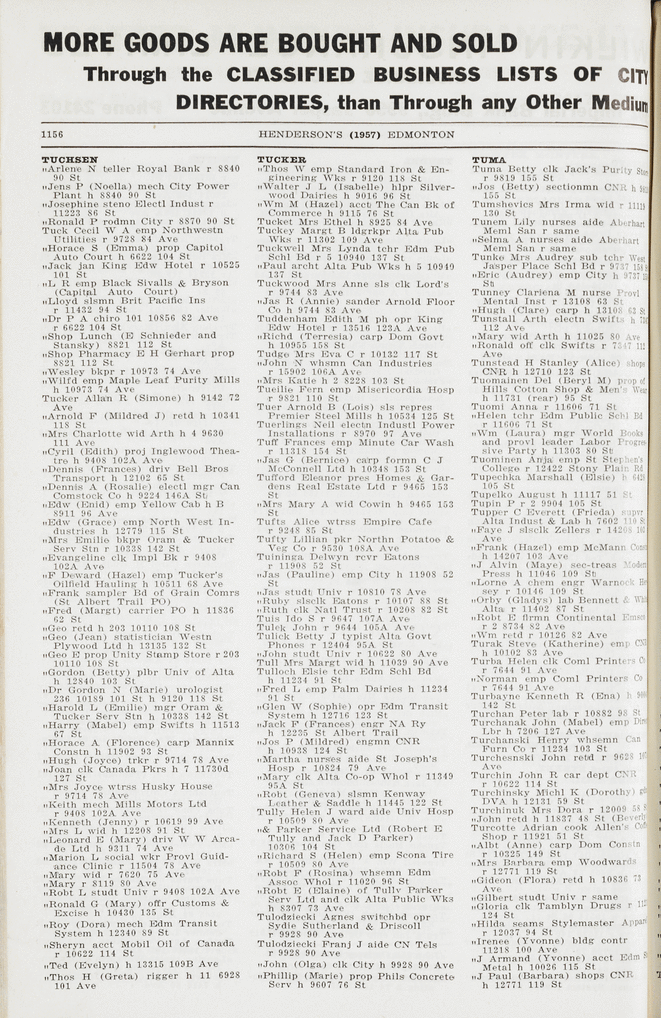 MORE GOODS ARE BOUGHT AND SOLD
Through the CLASSIFIED BUSINESS LISTS OF CITY
DIRECTORIES, than Through any Other Medium
1156
HENDERSON'S (1957) EDMONTON
TUCHSEN
„Arlene N teller Royal Bank r 8840
90 St
„Jens P (Noella) mech City Power
Plant h 8840 90 St
„Josephine steno Electl Indust r
11223 86 St
„Ronald P rodmn City r 8870 90 St
Tuck Cecil W A emp Northwestn
Utilities r 9728 84 Ave
„Horace S (Emma) prop Capitol
Auto Court h 6622 104 St
„Jack jan King Edw Hotel r 10525
101 St
„L R emp Black Sivalls & Bryson
(Capital Auto Court)
„Lloyd slsmn Brit Pacific Ins
r 11432 94 St
„Dr P A chiro 101 10856 82 Ave
r 6622 104 St
„Shop Lunch (E Schnieder and
Stansky) 8821 112 St
„Shop Pharmacy E H Gerhart prop
8821 112 St
„Wesley bkpr r 10973 74 Ave
„Wilfd emp Maple Leaf Purity Mills
h 10973 74 Ave
Tucker Allan R (Simone) h 9142 72
Ave
„Arnold F (Mildred J) retd h 10341
118 St
„Mrs Charlotte wid Arth h 4 9630
111 Ave
„Cyril (Edith) proj Inglewood Thea-
tre h 9408 102A Ave
„Dennis (Frances) driv Bell Bros
Transport h 12102 65 St
„Dennis A (Rosalie) electl mgr Can
Comstock Co h 9224 146A St
„Edw (Enid) emp Yellow Cab h B
8911 96 Ave
„Edw (Grace) emp North West In-
dustries h 12779 115 St
„Mrs Emilie bkpr Oram & Tucker
Serv Stn r 10338 142 St
„Evangeline clk Impl Bk r 9408
102A Ave
„F Deward (Hazel) emp Tucker's
Oilfield Hauling h 10511 68 Ave
„Frank sampler Bd of Grain Comrs
(St Albert Trail PO)
„Fred (Margt) carrier PO h 11836
62 St
„Geo retd h 203 10110 108 St
„Geo (Jean) statistician Westn
Plywood Ltd h 13135 132 St
„Geo E prop Unity Stamp Store r 203
10110 108 St
„Gordon (Betty) plbr Univ of Alta
h 12840 103 St
„Dr Gordon N (Marie) urologist
236 10189 101 St h 9120 118 St
„Harold L (Emilie) mgr Oram &
Tucker Serv Stn h 10338 142 St
„Harry (Mabel) emp Swifts h 11513
67 St
„Horace A (Florence) carp Mannix
Constn h 11902 93 St
„Hugh (Joyce) trkr r 9714 78 Ave
„Joan clk Canada Pkrs h 7 11730d
127 St
„Mrs Joyce wtrss Husky House
r 9714 78 Ave
„Keith mech Mills Motors Ltd
r 9408 102A Ave
„Kenneth (Jenny) r 10619 99 Ave
„Mrs L wid h 12208 91 St
„Leonard E (Mary) driv W W Arca-
de Ltd h 9311 74 Ave
„Marion L social wkr Provl Guid-
ance Clinic r 11504 78 Ave
„Mary wid r 7620 75 Ave
„Mary r 8119 80 Ave
„Robt L studt Univ r 9408 102A Ave
„Ronald G (Mary) offr Customs &
Excise h 10430 135 St
„Roy (Dora) mech Edm Transit
System h 12340 89 St
„Sheryn acct Mobil Oil of Canada
r 10622 114 St
„Ted (Evelyn) h 13315 109B Ave
„Thos H (Greta) rigger h 11 6928
101 Ave
TUCKER
„Thos W emp Standard Iron & En-
gineering Wks r 9120 118 St
„Walter J L (Isabelle) hlpr Silver-
wood Dairies h 9016 96 St
„Wm M (Hazel) acct The Can Bk of
Commerce h 9115 76 St
Tucket Mrs Ethel h 8925 84 Ave
Tuckey Margt B ldgrkpr Alta Pub
Wks r 11302 109 Ave
Tuckwell Mrs Lynda tchr Edm Pub
Schl Bd r 5 10940 137 St
„Paul archt Alta Pub Wks h 5 10940
137 St
Tuckwood Mrs Anne sls clk Lord's
r 9744 83 Ave
„Jas R (Annie) sander Arnold Floor
Co h 9744 83 Ave
Tuddenham Edith M ph opr King
Edw Hotel r 13516 123A Ave
„Richd (Terresia) carp Dom Govt
h 10955 158 St
Tudge Mrs Eva C r 10132 117 St
„John N whsmn Can Industries
r 15902 106A Ave
„Mrs Katie h 2 8228 103 St
Tueille Fern emp Misericordia Hosp
r 9821 110 St
Tuer Arnold B (Lois) sls repres
Premier Steel Mills h 10534 125 St
Tuerlings Neil electn Industl Power
Installations r 8970 97 Ave
Tuff Frances emp Minute Car Wash
r 11318 154 St
„Jas G (Bernice) carp formn C J
McConnell Ltd h 10348 153 St
Tufford Eleanor pres Homes & Gar-
dens Real Estate Ltd r 9465 153
St
„Mrs Mary A wid Cowin h 9465 153
St
Tufts Alice wtrss Empire Cafe
r 9248 85 St
Tufty Lillian pkr Northn Potatoe &
Veg Co r 9530 108A Ave
Tuininga Delwyn rcvr Eatons
r 11908 52 St
„Jas (Pauline) emp City h 11908 52
St
„Jas studt Univ r 10810 78 Ave
„Ruby slsclk Eatons r 10107 88 St
„Ruth clk Natl Trust r 10208 82 St
Tuis Ido S r 9647 107A Ave
Tulek John r 9644 105A Ave
Tulick Betty J typist Alta Govt
Phones r 12404 95A St
„John studt Univ r 10622 80 Ave
Tull Mrs Margt wid h 11039 90 Ave
Tulloch Elsie tchr Edm Schl Bd
h 11234 91 St
„Fred L emp Palm Dairies h 11234
91 St
„Glen W (Sophie) opr Edm Transit
System h 12716 123 St
„Jack F (Frances) engr NA Ry
h 12235 St Albert Trail
„Jos P (Mildred) engmn CNR
h 10938 124 St
„Martha nurses aide St Joseph's
Hosp r 10824 79 Ave
„Mary clk Alta Co-op Whol r 11349
95A St
„Robt (Geneva) slsmn Kenway
Leather & Saddle h 11445 122 St
Tully Helen J ward aide Univ Hosp
r 10509 80 Ave
„& Parker Service Ltd (Robert E
Tully and Jack D Parker)
10306 104 St
„Richard S (Helen) emp Scona Tire
r 10509 80 Ave
„Robt F (Rosina) whsemn Edm
Assoc Whol r 11020 96 St
„Robt E (Elaine) of Tully Parker
Serv Ltd and clk Alta Public Wks
h 8307 73 Ave
Tulodziecki Agnes switchbd opr
Sydie Sutherland & Driscoll
r 9928 90 Ave
Tulodziecki Franj J aide CN Tels
r 9928 90 Ave
„John (Olga) clk City h 9928 90 Ave
„Phillip (Marie) prop Phils Concrete
Serv h 9607 76 St
TUMA
Tuma Betty clk Jack's Purity Store
r 9819 155 St
„Jos (Betty) sectionmn CNR h
155 St
Tumshevics Mrs Irma wid r 11119
130 St
Tunem Lily nurses aide Aberhart
Meml San r same
„Selma A nurses aide Aberhart
Meml San r same
Tunke Mrs Audrey sub tchr West
Jasper Place Schl Bd r 9737 158 S
„Eric (Audrey) emp City h 9737
St
Tunney Clariena M nurse Provl
Mental Inst r 13108 63 St
„Hugh (Clare) carp h 13108 63 St
Tunstall Arth electn Swifts h
112 Ave
„Mary wid Arth h 11025 80 Ave
„Ronald off clk Swifts r 7347 112
Ave
Tunstead H Stanley (Alice) shops
CNR h 12710 123 St
Tuomainen Del (Beryl M) prop of
Hills Cotton Shop & Men's West
h 11731 (rear) 95 St
Tuomi Anna r 11606 71 St
„Helen tchr Edm Public Schl Bd
r 11606 71 St
„Wm (Laura) mgr World Books
and provl leader Labor Progres-
sive Party h 11303 80 St
Tuominen Anja emp St Stephen's
College r 12422 Stony Plain Rd
Tupechka Marshall (Elsie) h 642
105 St
Tupelko August h 11117 51 St
Tupin P r 2 9904 105 St
Tupper C Everett (Frieda) supvr
Alta Indust & Lab h 7602 110 S
„Faye J slsclk Zellers r 14208 107
Ave
„Frank (Hazel) emp McMann Const
h 14207 103 Ave
„J Alvin (Maye) sec-treas Modern
Press h 11046 109 St
„Lorne A chem engr Warnock He
sey r 10146 109 St
„Orby (Gladys) lab Bennett & Whi
Alta r 11402 87 St
„Robt E firmn Continental Emsco
r 2 8734 82 Ave
„Wm retd r 10126 82 Ave
Turak Steve (Katherine) emp CN
h 10102 83 Ave
Turba Helen clk Coml Printers Co
r 7644 91 Ave
„Norman emp Coml Printers Co
r 7644 91 Ave
Turbayne Kenneth R (Ena) h
142 St
Turchan Peter lab r 10882 98 St
Turchanak John (Mabel) emp Dir
Lbr h 7206 127 Ave
Turchanski Henry whsemn Can
Furn Co r 11234 103 St
Turchesnski John retd r 9628 107
Ave
Turchin John R car dept CNR
r 10622 114 St
Turchinsky Michl K (Dorothy)
DVA h 12131 59 St
Turchinuk Mrs Dora r 12009 58 S
„John retd h 11837 48 St (Beverly
Turcotte Adrian cook Allen's Co
Shop r 11921 51 St
„Albt (Anne) carp Dom Constn
r 10325 149 St
„Mrs Barbara emp Woodwards
r 12771 119 St
„Gideon (Flora) retd h 10836 73
Ave
„Gilbert studt Univ r same
„Gloria clk Tamblyn Drugs r
124 St
„Hilda seams Stylemaster Appar
r 12037 94 St
„Irenee (Yvonne) bldg contr
11218 100 Ave
„J Armand (Yvonne) acct Edm S
Metal h 10026 115 St
„J Paul (Barbara) shops CNR
h 12771 119 St